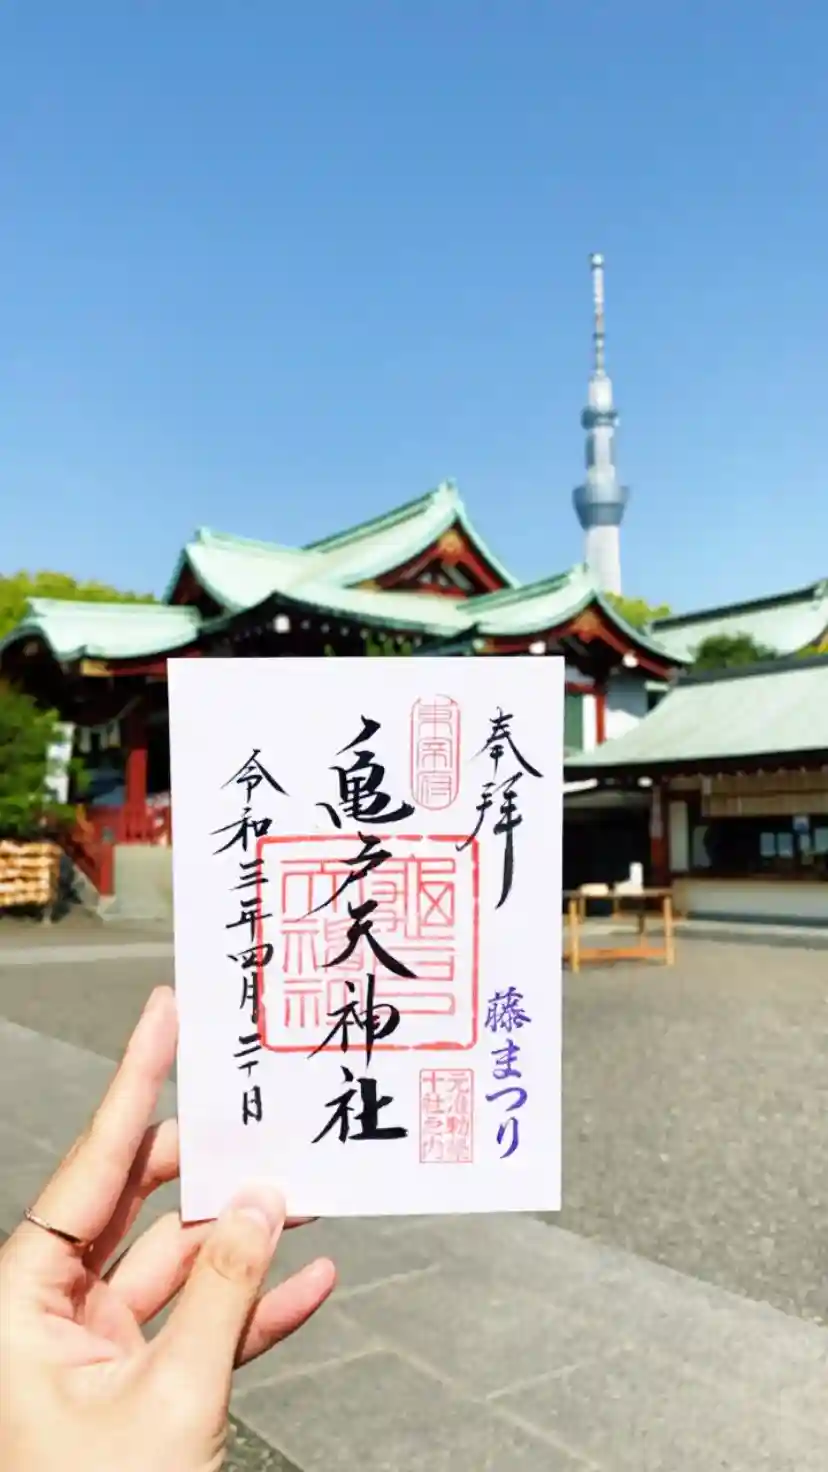 奉拝
藤まつり
東宰府
亀戸天神社
元准勅祭
十社之内
令和三年四月二十日